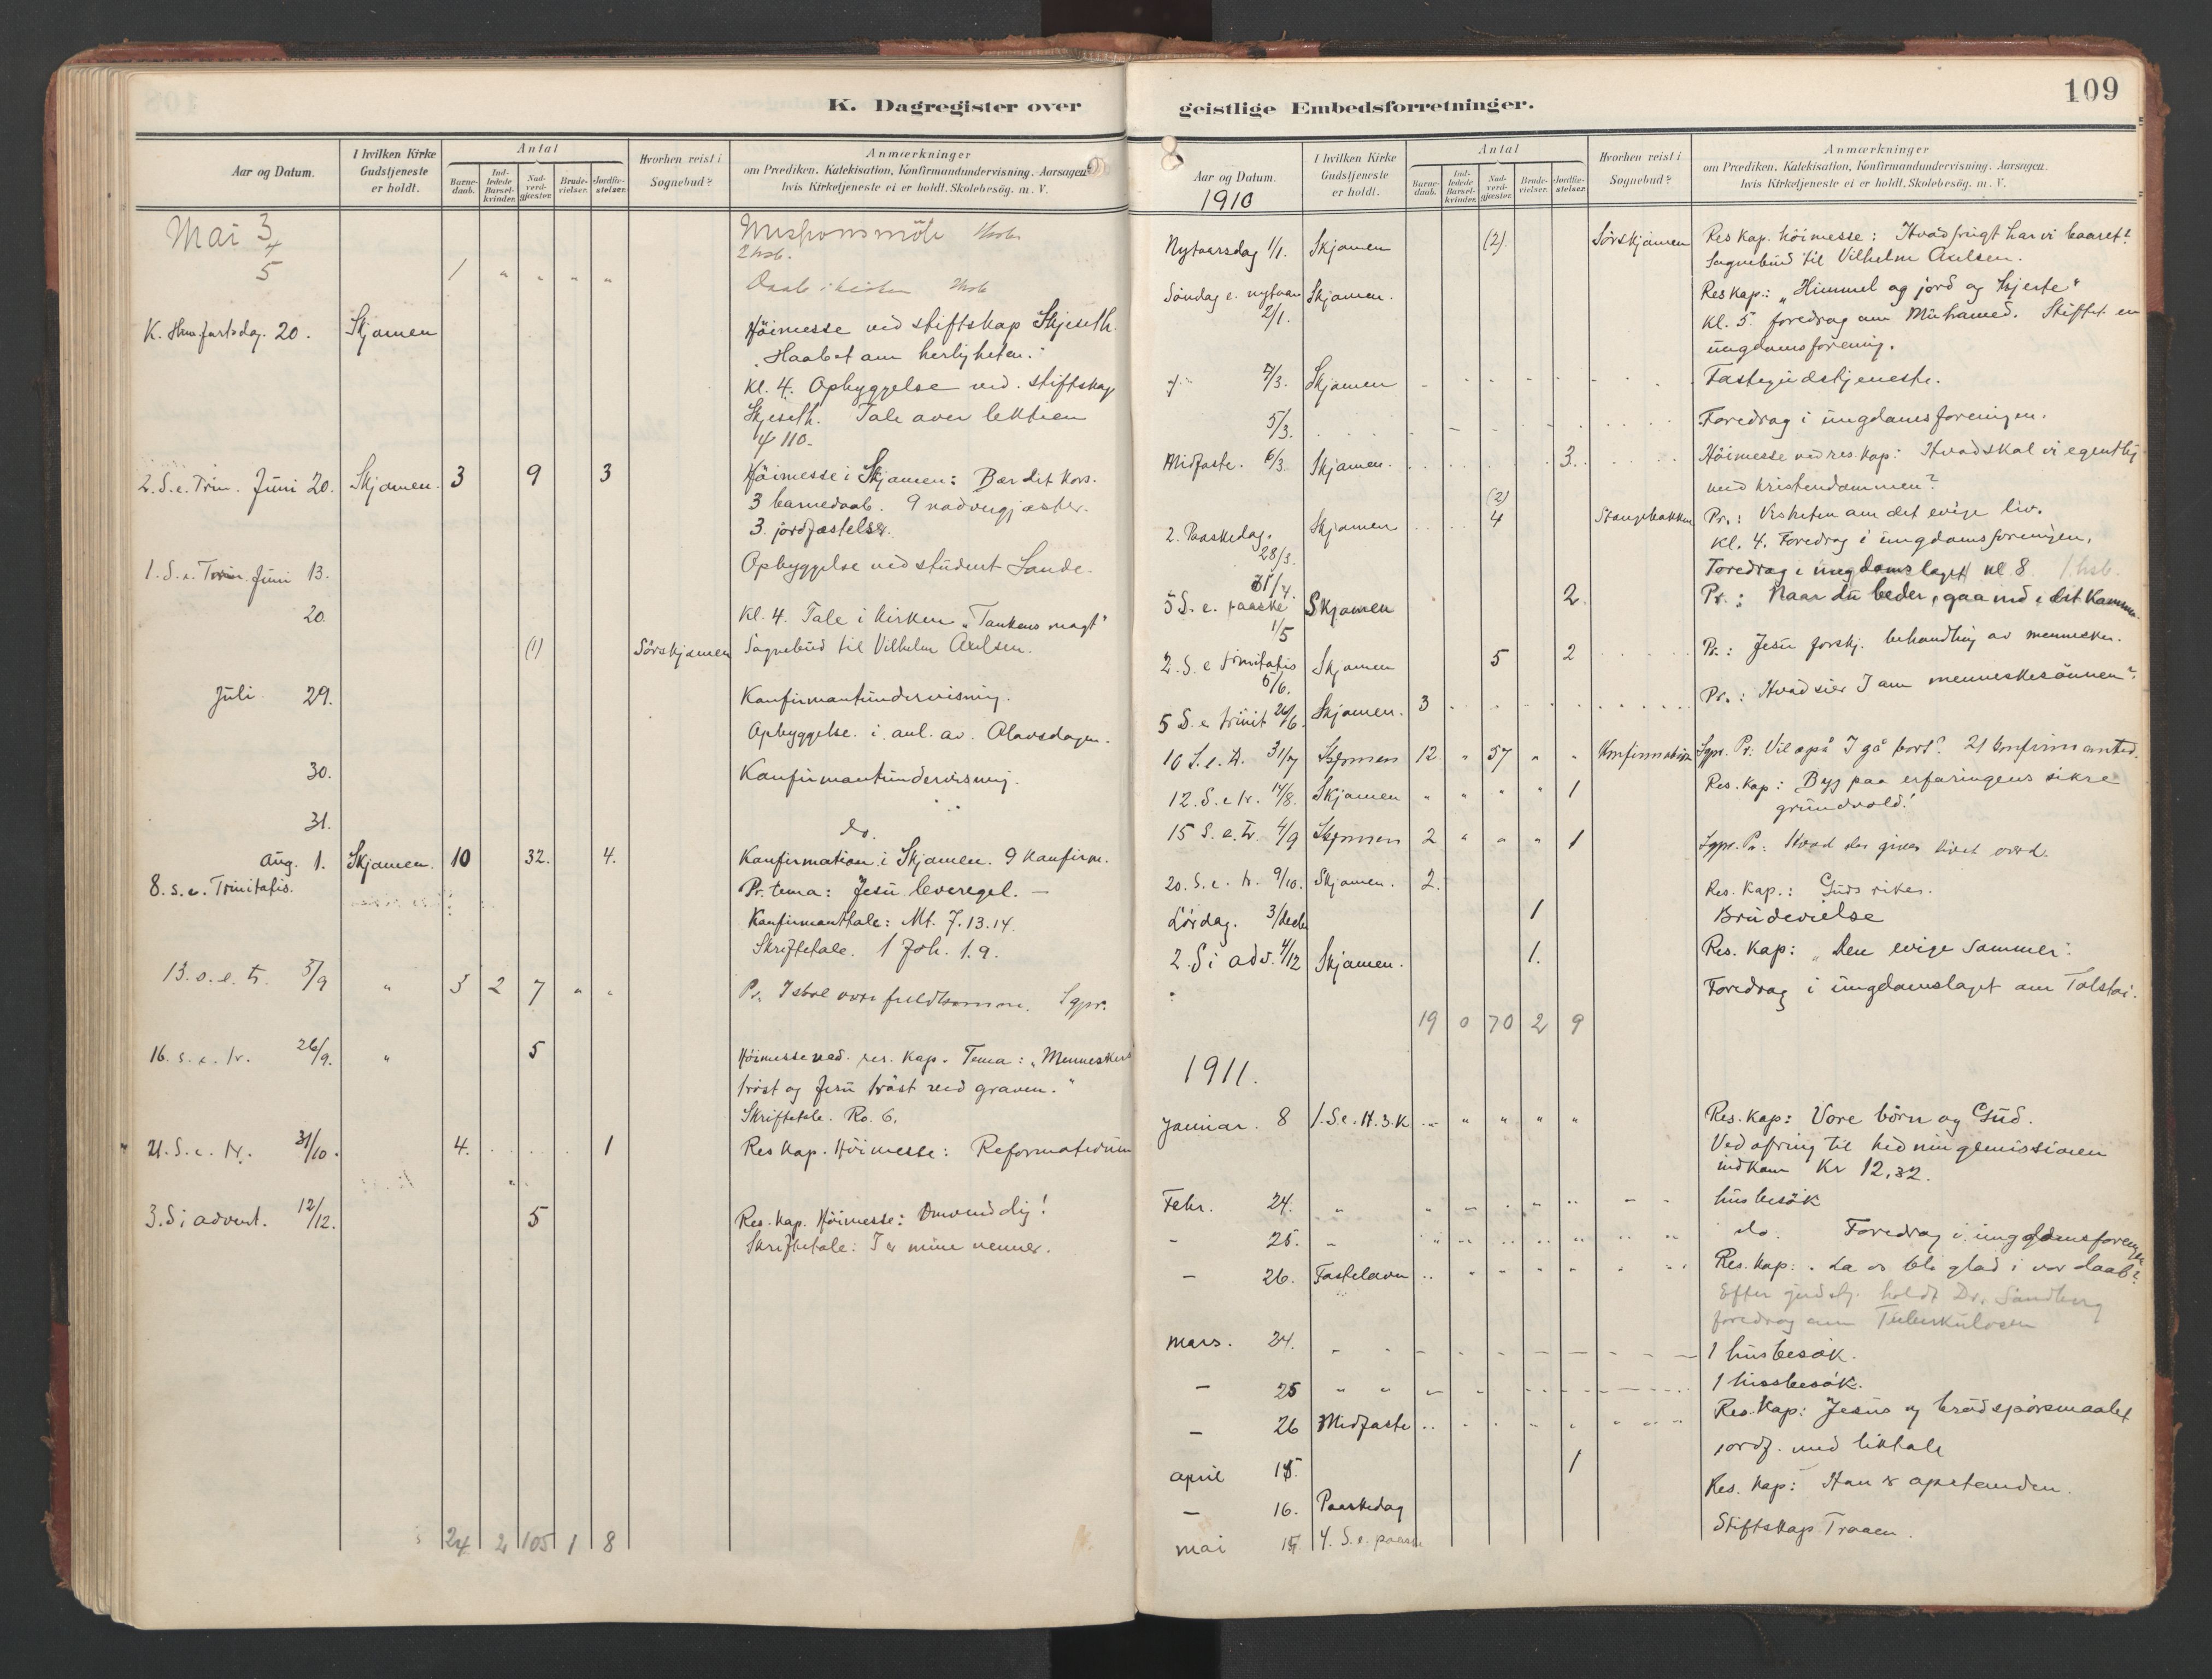 K. Dagregister over
Aar og Datum.
I hvilken Kirke Gudstjeneste er holdt.
Antal
Barne-daab.
Ind-ledede Barsel-kvinder.
Nad-verd-gjæster.
Brude-vielser.
Jordfæ-stelser.
Hvorhen reist i Sognebud?
Anmærkninger
om Prædiken. Katekisation, Konfirmandundervisning. Aarsagen
hvis Kirketjeneste ei er holdt. Skolebesög. m. V.
Mai 3 Missionsmöte
4 2 hsb.
5 1 " " " " Daab i kirken
K. Hm. fartsdag. 20. Skjomen Höimesse ved stiftskap Skjeseth.
"Haabet om herligheten."
Kl. 4. Opbyggelse ved stiftskap
Skjeseth. Tale over lektien
ψ 110.
2. S. e. Trin. Juni 20. Skjomen. 3 9 3 Höimesse i Skjomen: Bær dit kors.
3 barnedaab. 9 nadvergjæster.
3 jordfæstelser.
1. S. e. Trin. Juni 13. Opbyggelse ved student Sande.
20. Kl. 4. Tale i kirken "Tankens magt"
(1) Sörskjomen Sognebud til Vilhelm Axelsen.
Juli 29. Konfirmantundervisning.
Opbyggelse i anl. av Olavsdagen.
30. Konfirmantundervisning.
31. do.
Aug. 1. Skjomen. 10 32. 4. Konfirmation i Skjomen. 9 Konfirm.
8. s. e. Trinitatis. Pr. tema: Jesu leveregel. —
Konfirmanttale: Mt. 7.13.14.
Skriftetale. 1 Joh. 1.9.
13. s. e. tr. 5/9 " 3 2 7 " " Pr. I skal være fuldkomne. Sgpr.
16. s. e. tr. 26/9. " 5 Höimesse ved res. kap. Tema: "Menneskers
tröst og Jesu tröst ved graven."
Skriftetale. Ro. 6.
21. S. e. tr. 31/10. 4. 1 Res kap. Höimesse: Reformationen
3. S i advent. 12/12. 5 Res. kap. Höimesse: Omvend dig!
Skriftetale: I er mine venner.
24 2 105 1 8
geistlige Embedsforretninger.
109
Aar og Datum.
1910
I hvilken Kirke Gudstjeneste er holdt.
Antal
Barne-daab.
Ind-ledede Barsel-kvinder.
Nad-verd-gjæster.
Brude-vielser.
Jordfæ-stelser.
Hvorhen reist i Sognebud?
Anmærkninger
om Prædiken. Katekisation, Konfirmandundervisning. Aarsagen
hvis Kirketjeneste ei er holdt. Skolebesög. m. V.
Nytaarsdag 1/1. Skjomen (2) Sörskjomen Res kap. höimesse: Hvad frugt har vi baaret?
Sognebud til Vilhelm Axelsen.
Söndag e. nytaar 2/1. Skjomen. Res kap.: "Himmel og jord og hjerte"
Kl. 5. foredrag om Muhamed. Stiftet en
ungdomsforening.
4/3. Skjomen Fastegudstjeneste.
5/3. Foredrag i ungdomsforeningen.
Midfaste. 6/3. Skjomen. 3. Höimesse ved res. kap: Hvad skal vi egentlig
med kristendommen?
2. Paaskedag. 28/3. Skjomen (2) 4 Stangebakken Pr.: Visheten om det evige liv.
Kl. 4. Foredrag i ungdomsforeningen.
Foredrag i ungdomslaget kl 8. 1 hsb.
5 S. e. paaske 1/5 Skjomen 2 Pr.: Naar du beder, gaa ind i dit kammer.
2. S. e trinitatis 5/6. Skjomen 5 2 Pr.: Jesu forskj. behandling av mennesker.
5 S. e. trinit 26/6. Skjomen. 3 Pr.: Hvad sier I om menneskesönnen?
10 S. e. tr. 31/7 Skjomen 12 " 57 " " Konfirmation Sgpr. Pr: Vil også I gå bort? 21 konfirmanter.
12. S. e tr. 14/8. Skjomen " " " " 1 Res. kap: Byg paa erfaringens sikre
grundvold!
15 S. e. tr. 4/9 Skjomen 2 " " " 1 Sgpr. Pr: Hvad der giver livet værd.
20. S. e. tr. 9/10. Skjomen. 2. Res. kap.: Guds rike.
Lördag. 3/decbr 1 Brudevielse
2. S i adv. 4/12 Skjomen. 1. Res. kap: "Den evige sommer."
Foredrag i ungdomslaget om Tolstoi.
19 0 70 2 9
1911.
Januar. 8 1. S. e. H. 3. K Res. kap: Vore börn og Gud.
Ved ofring til hedningemissionen
indkom kr 12,32.
Febr. 24. " husbesök
- 25. - do. Foredrag i ungdomsforeningen
- 26. Fastelavn Res. kap: La os bli glad i vor daab!
Efter gudstj. holdt Dr. Sandberg
foredrag om Tuberkulosen
Mars. 24. 1 husbesök.
- 25 1 husbesök.
- 26 Midfaste Res. kap: Jesus og brödspörsmaalet
April 15. 1 jordf. med liktale
- 16. Paaskedag Res. kap: Han er opstanden.
Mai 4. S. e. paaske Stiftskap Traaen.